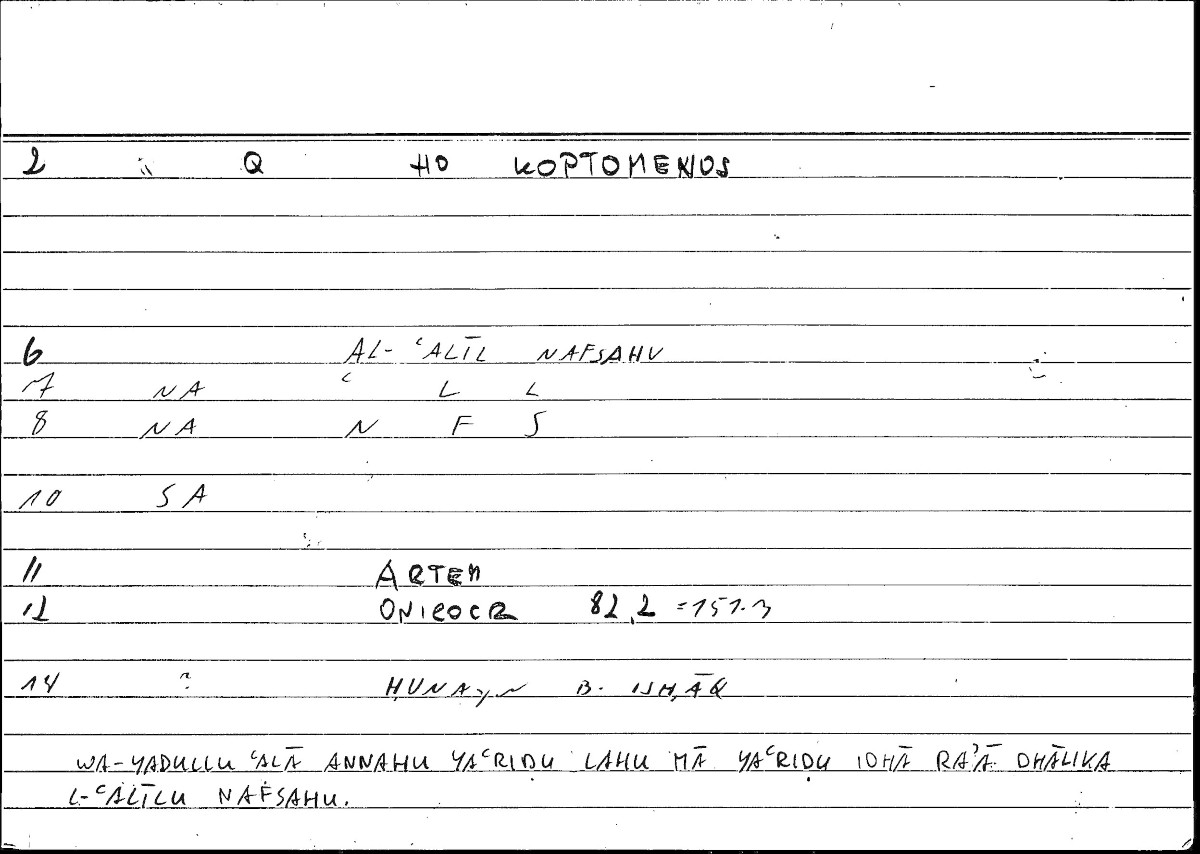 2 " Q HO KOPTOMENOS
6 AL-ʿALĪL NAFSAHU
7 NA ʿ L L
8 NA N F S
10 SA
11 ARTEM
12 ONIROCR 82,2 =151.3
14 ? ḤUNAYN B. ISḤĀQ
WA-YADULLU ʿALĀ ANNAHU YAʿRIḌU LAHU MĀ YAʿRIḌU IDHĀ RAʾĀ DHĀLIKA
L-ʿALĪLU NAFSAHU.